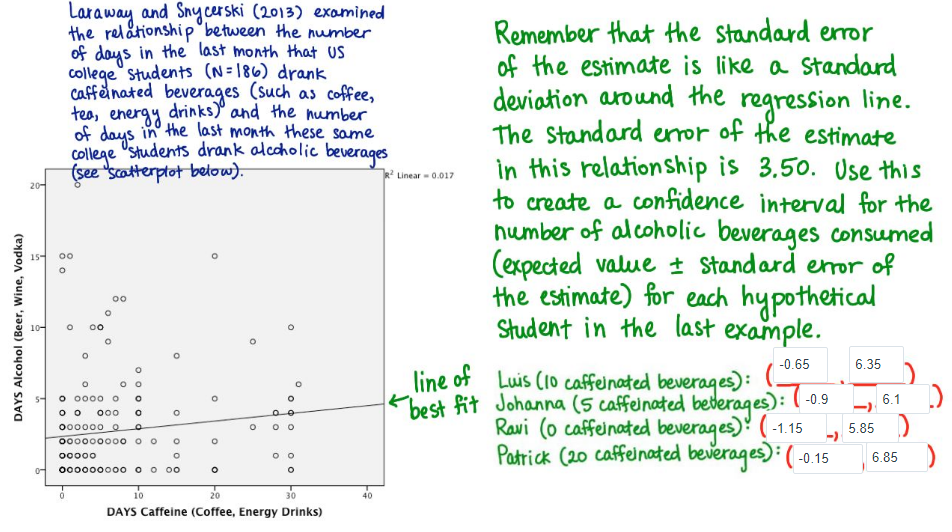 Laraway and Snycerski (2013) examined
the relationship between the number
of days in the last month that US
college students (N=186) drank
caffeinated beverages (such as coffee,
tea, energy drinks) and the number
of days in the last month these same
college students drank alcoholic beverages
(see scatterplot below).
R² Linear = 0.017
20
15
10
5
0
DAYS Alcohol (Beer, Wine, Vodka)
0 10 20 30 40
DAYS Caffeine (Coffee, Energy Drinks)
line of
best fit
Remember that the standard error
of the estimate is like a standard
deviation around the regression line.
The standard error of the estimate
in this relationship is 3.50. Use this
to create a confidence interval for the
number of alcoholic beverages consumed
(expected value ± standard error of
the estimate) for each hypothetical
student in the last example.
Luis (10 caffeinated beverages): (-0.65 6.35)
Johanna (5 caffeinated beverages): (-0.9, 6.1)
Ravi (0 caffeinated beverages): (-1.15, 5.85)
Patrick (20 caffeinated beverages): (-0.15 6.85)